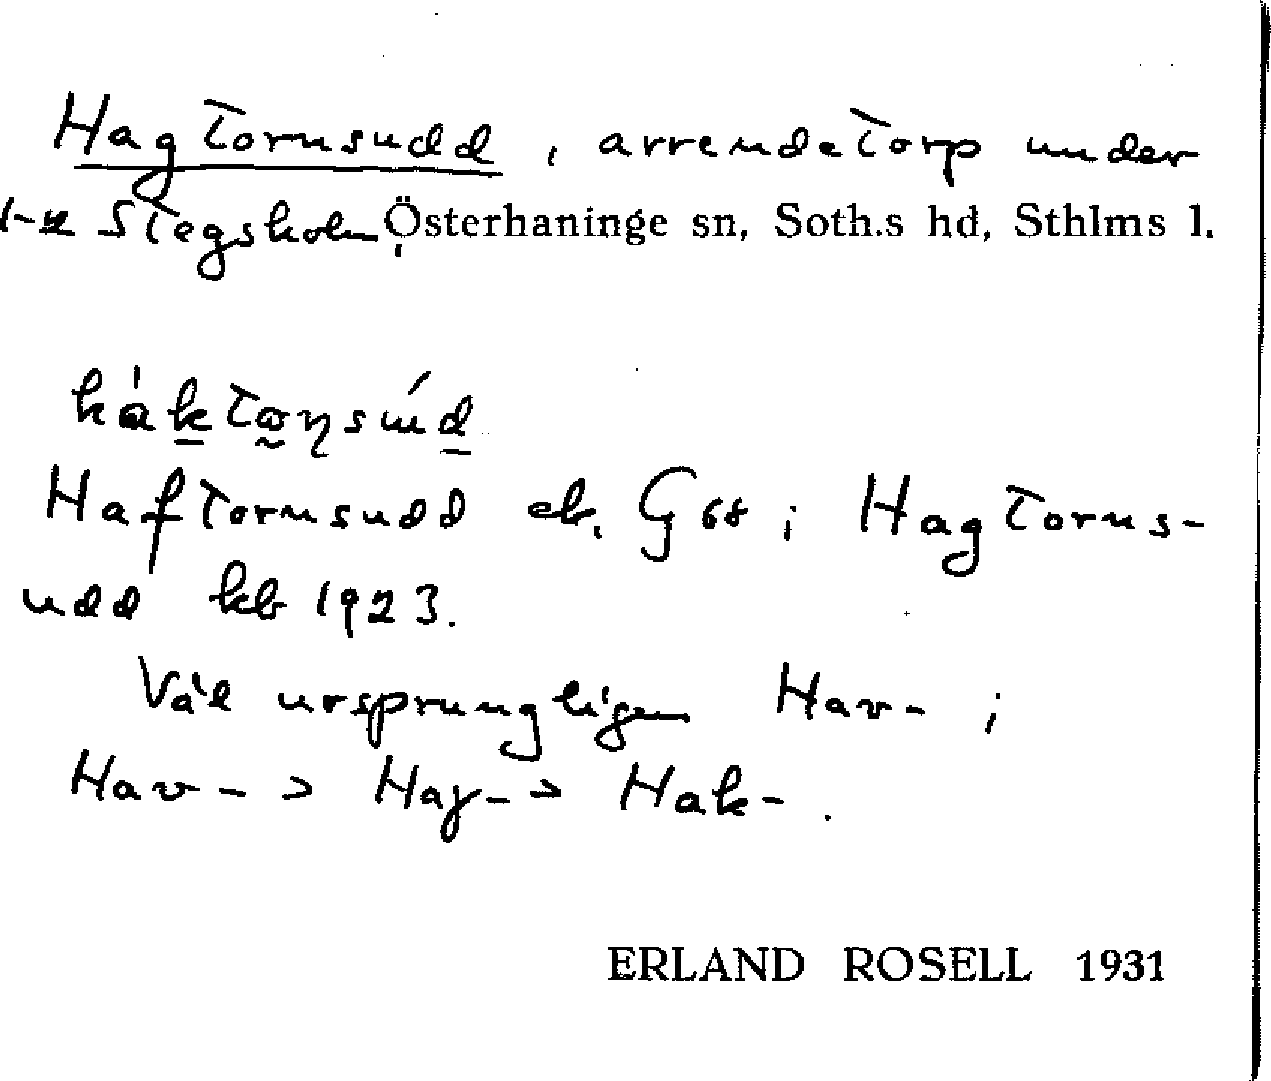 Hagtornsudd, arrendetorp under
Stegsholm, Österhaninge sn, Soth.s hd, Sthlms l.
Haftornsudd eb. G68; Hagtorns-
udd kb 1923.
Väl ursprungligen Hav- ;
Hav- > Haɣ- > Hak- .
ERLAND ROSELL 1931